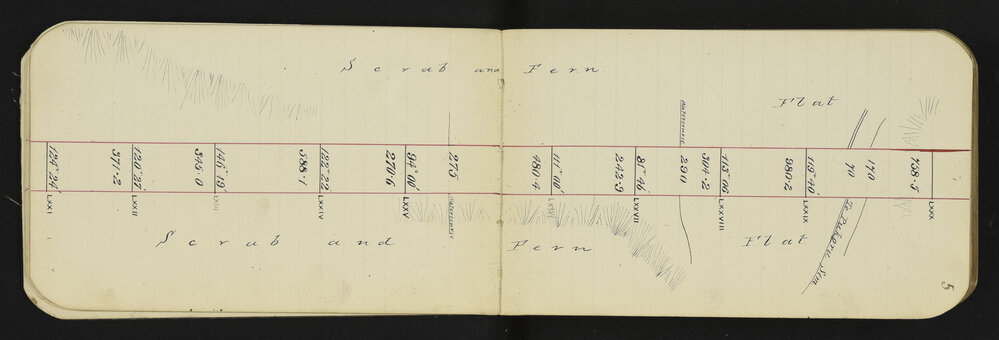 Scrub and Fern
Flat
124° 24'
371·2
120° 27'
345·0
146° 19'
388·1
122° 22'
270·6
94° 00'
275
480·4
111° 00'
242·9
81° 46'
290
304·2
980·2
70
170
758·5
LXXI
LXXII
LXXIII
LXXIV
LXXV
LXXVI
LXXVII
LXXVIII
LXXIX
LXXX
Scrub and Fern
Flat
5